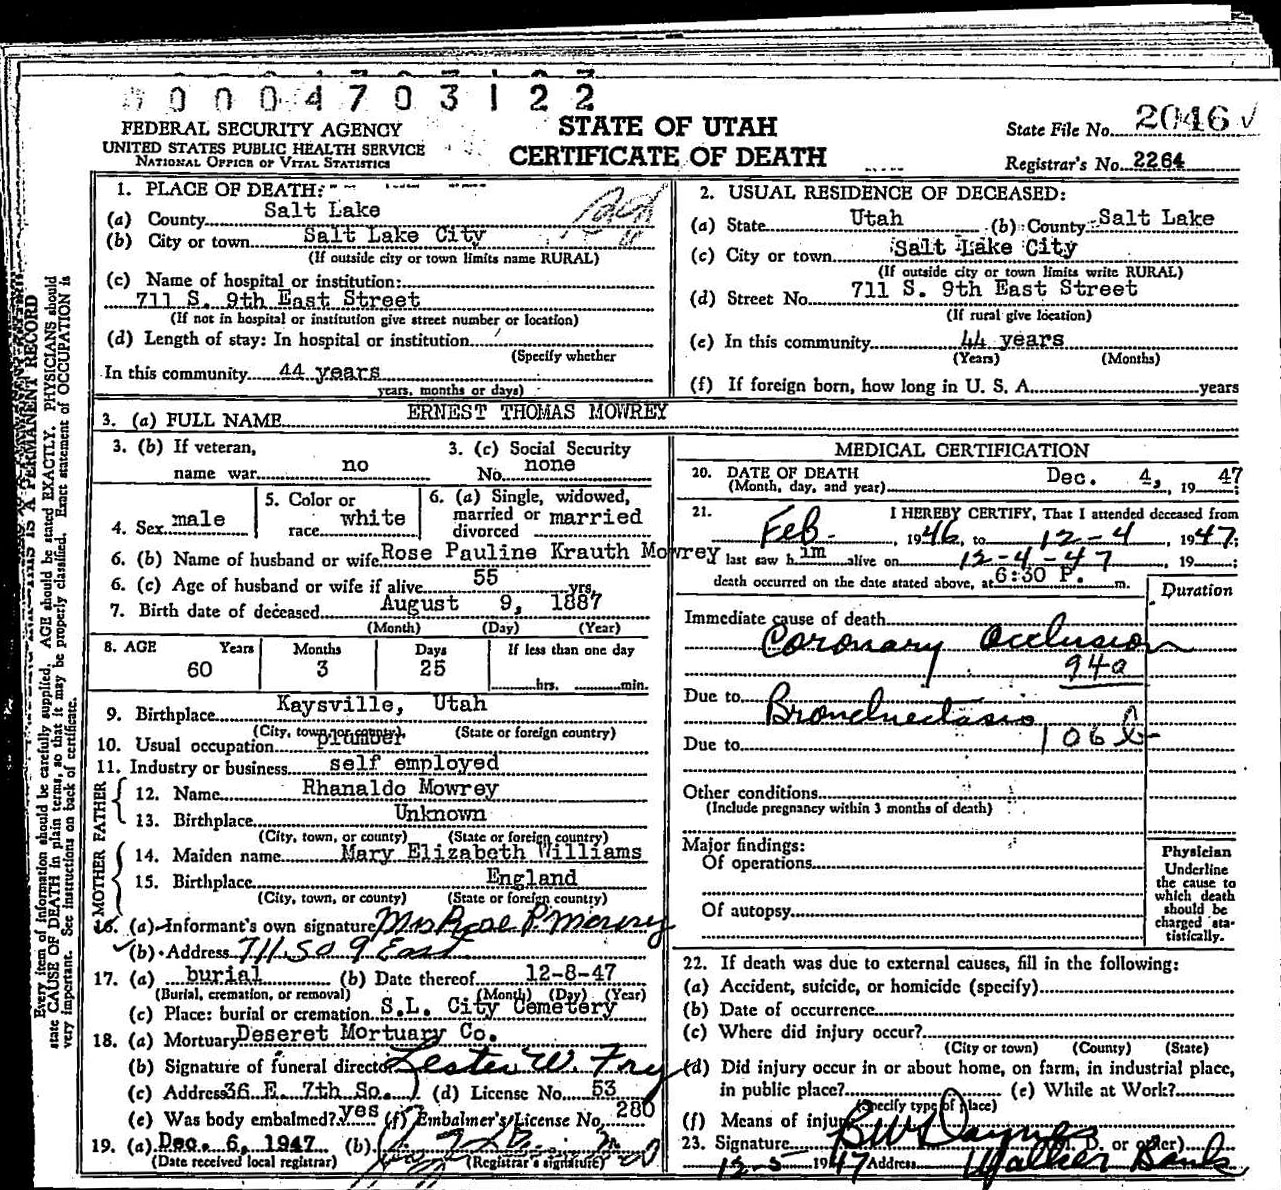 0 0 0 4 7 0 3 1 2 2
FEDERAL SECURITY AGENCY
UNITED STATES PUBLIC HEALTH SERVICE
NATIONAL OFFICE OF VITAL STATISTICS
STATE OF UTAH
CERTIFICATE OF DEATH
State File No. 2046 ✓
Registrar's No. 2264
Every item of information should be carefully supplied. AGE should be stated EXACTLY. PHYSICIANS should
state CAUSE OF DEATH in plain terms, so that it may be properly classified. Exact statement of OCCUPATION is
very important. See instructions on back of certificate.
THIS IS A PERMANENT RECORD
1. PLACE OF DEATH:
(a) County Salt Lake
(b) City or town Salt Lake City
(If outside city or town limits name RURAL)
(c) Name of hospital or institution:
711 S. 9th East Street
(If not in hospital or institution give street number or location)
(d) Length of stay: In hospital or institution
(Specify whether
In this community 44 years
years, months or days)
2. USUAL RESIDENCE OF DECEASED:
(a) State Utah (b) County Salt Lake
(c) City or town Salt Lake City
(If outside city or town limits write RURAL)
(d) Street No. 711 S. 9th East Street
(If rural give location)
(e) In this community 44 years
(Years) (Months)
(f) If foreign born, how long in U. S. A. years
3. (a) FULL NAME ERNEST THOMAS MOWREY
3. (b) If veteran,
name war no
3. (c) Social Security
No. none
4. Sex male
5. Color or
race white
6. (a) Single, widowed,
married or married
divorced
6. (b) Name of husband or wife Rose Pauline Krauth Mowrey
6. (c) Age of husband or wife if alive 55 yrs.
7. Birth date of deceased August 9, 1887
(Month) (Day) (Year)
8. AGE Years Months Days If less than one day
60 3 25
hrs. min.
9. Birthplace Kaysville, Utah
(City, town or county) (State or foreign country)
10. Usual occupation plumber
11. Industry or business self employed
FATHER
12. Name Rhanaldo Mowrey
13. Birthplace Unknown
(City, town, or county) (State or foreign country)
MOTHER
14. Maiden name Mary Elizabeth Williams
15. Birthplace England
(City, town, or county) (State or foreign country)
16. (a) Informant's own signature Mrs Rose P. Mowrey
✓(b) Address 711 So 9 East
17. (a) burial (b) Date thereof 12-8-47
(Burial, cremation, or removal) (Month) (Day) (Year)
(c) Place: burial or cremation S.L. City Cemetery
18. (a) Mortuary Deseret Mortuary Co.
(b) Signature of funeral director Lester W. Fry
(c) Address 36 E. 7th So. (d) License No. 53
(e) Was body embalmed? yes (f) Embalmer's License No. 280
19. (a) Dec. 6, 1947 (b)
(Date received local registrar) (Registrar's signature)
MEDICAL CERTIFICATION
20. DATE OF DEATH
(Month, day, and year) Dec. 4, 1947;
21. I HEREBY CERTIFY, That I attended deceased from
Feb. , 1946, to 12-4 , 1947;
I last saw him alive on 12-4-47 , 19 ;
death occurred on the date stated above, at 6:30 P. m.
Duration
Immediate cause of death
Coronary Occlusion
94a
Due to
Bronchiectasis
106 b
Due to
Other conditions
(Include pregnancy within 3 months of death)
Major findings:
Of operations
Of autopsy
Physician
Underline
the cause to
which death
should be
charged sta-
tistically.
22. If death was due to external causes, fill in the following:
(a) Accident, suicide, or homicide (specify)
(b) Date of occurrence
(c) Where did injury occur?
(City or town) (County) (State)
(d) Did injury occur in or about home, on farm, in industrial place,
in public place? (e) While at Work?
(Specify type of place)
(f) Means of injury
23. Signature (M. D. or other)
12-5 1947 Address Walker Bank